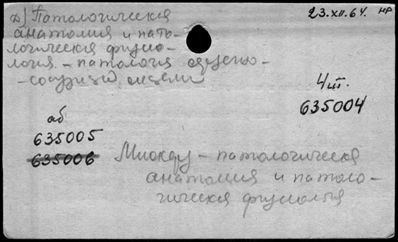 д) Патологическая
анатомия и пато-
логическая физио-
логия - патология сердечно-
-сосудистой системы
23.XII.64. нр
4 ш.
635004
аб
635005
635006
Миокард - патологическая
анатомия и патоло-
гическая физиология